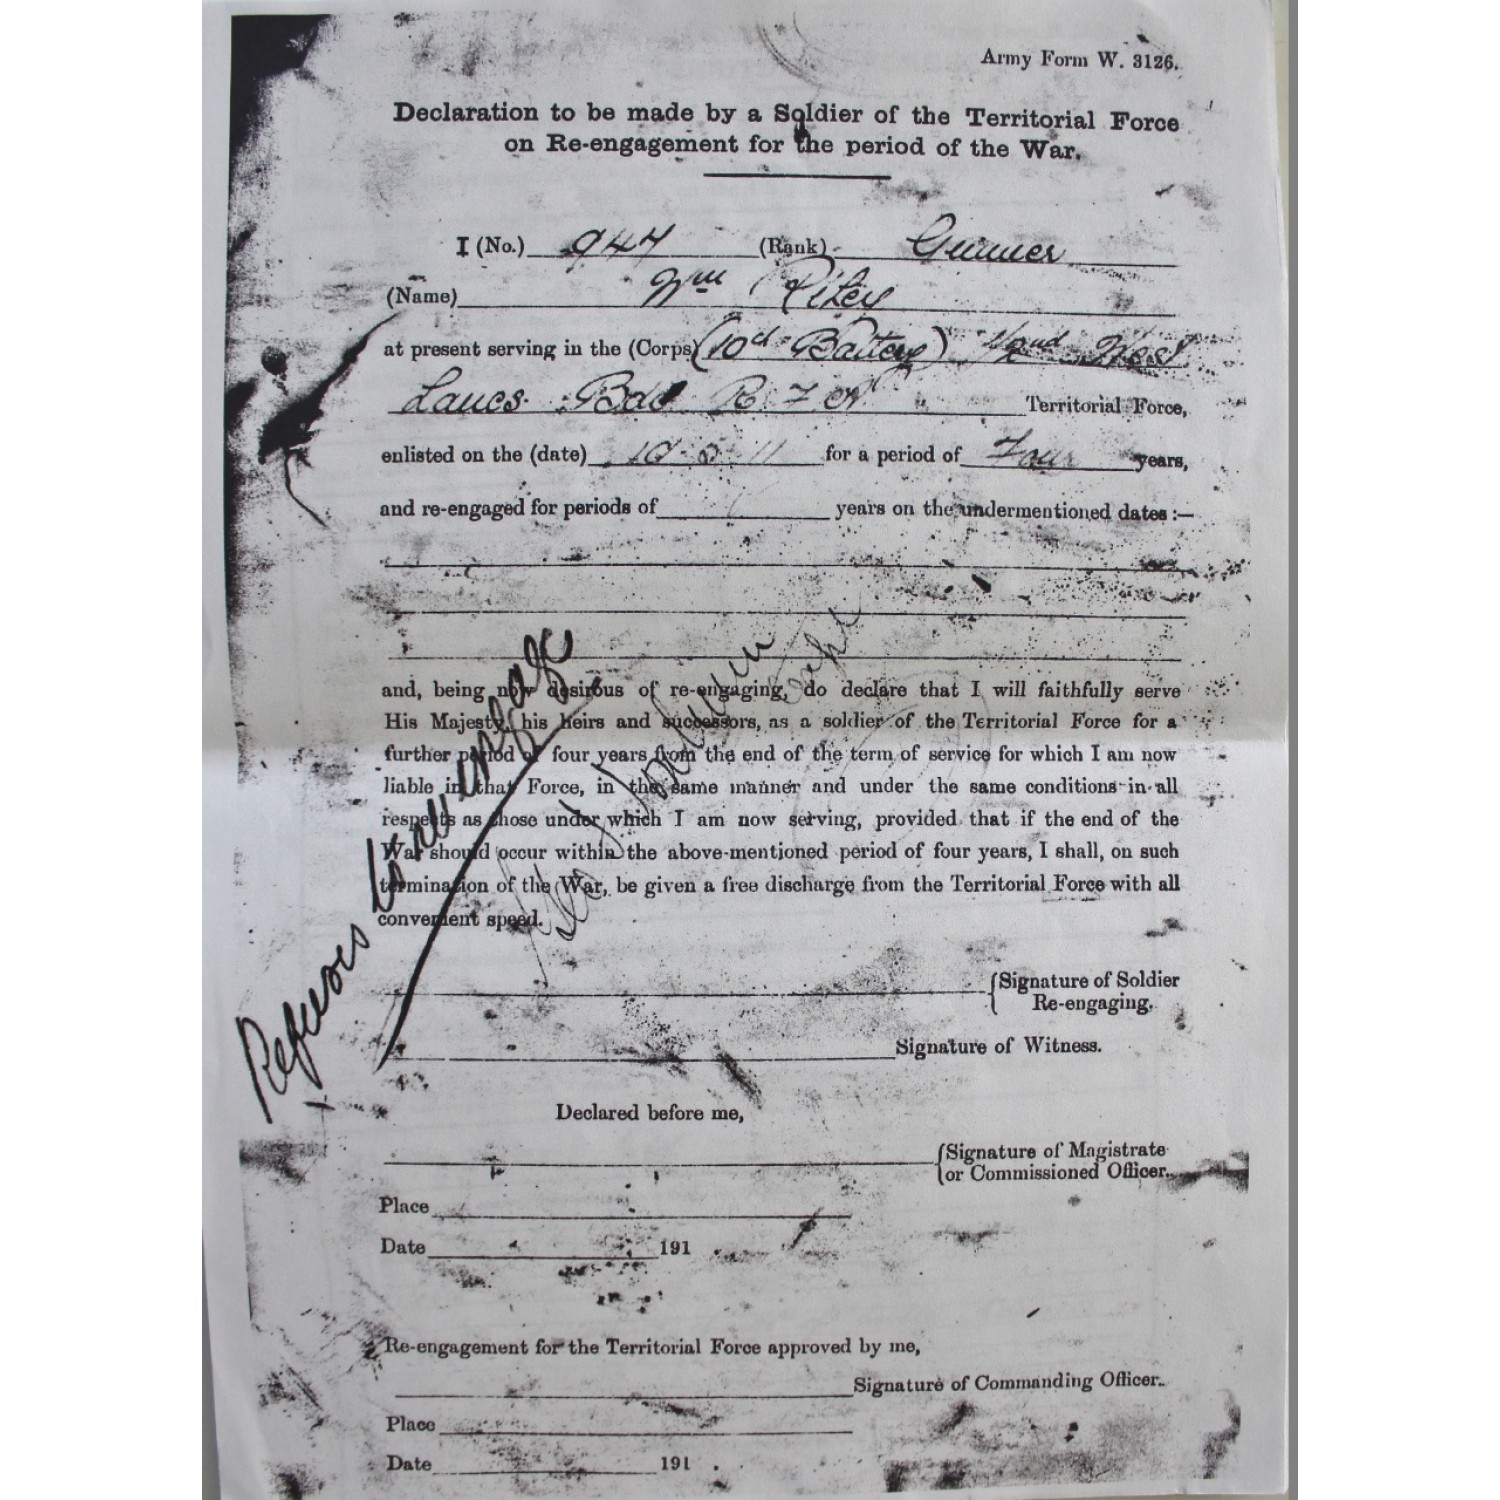 Army Form W. 3126.
Declaration to be made by a Soldier of the Territorial Force
on Re-engagement for the period of the War.
I (No.) 947 (Rank) Gunner
(Name) Wm Riley
at present serving in the (Corps) (10th Battery) 1/2nd West
Lancs. Bde R F A Territorial Force,
enlisted on the (date) 11 for a period of Four years,
and re-engaged for periods of years on the undermentioned dates :—
and, being now desirous of re-engaging, do declare that I will faithfully serve
His Majesty, his heirs and successors, as a soldier of the Territorial Force for a
further period of four years from the end of the term of service for which I am now
liable in that Force, in the same manner and under the same conditions in all
respects as those under which I am now serving, provided that if the end of the
War should occur within the above-mentioned period of four years, I shall, on such
termination of the War, be given a free discharge from the Territorial Force with all
convenient speed.
Refuses to re engage
Capt
Signature of Soldier
Re-engaging.
Signature of Witness.
Declared before me,
Signature of Magistrate
or Commissioned Officer.
Place
Date 191 .
Re-engagement for the Territorial Force approved by me,
Signature of Commanding Officer.
Place
Date 191 .